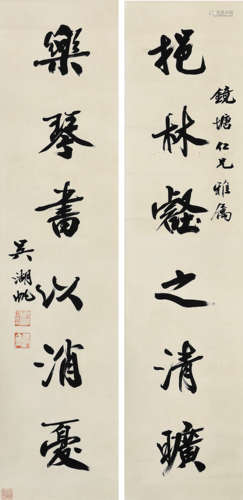 鏡塘仁兄雅屬
挹林壑之清曠
樂琴書以消憂
吳湖帆